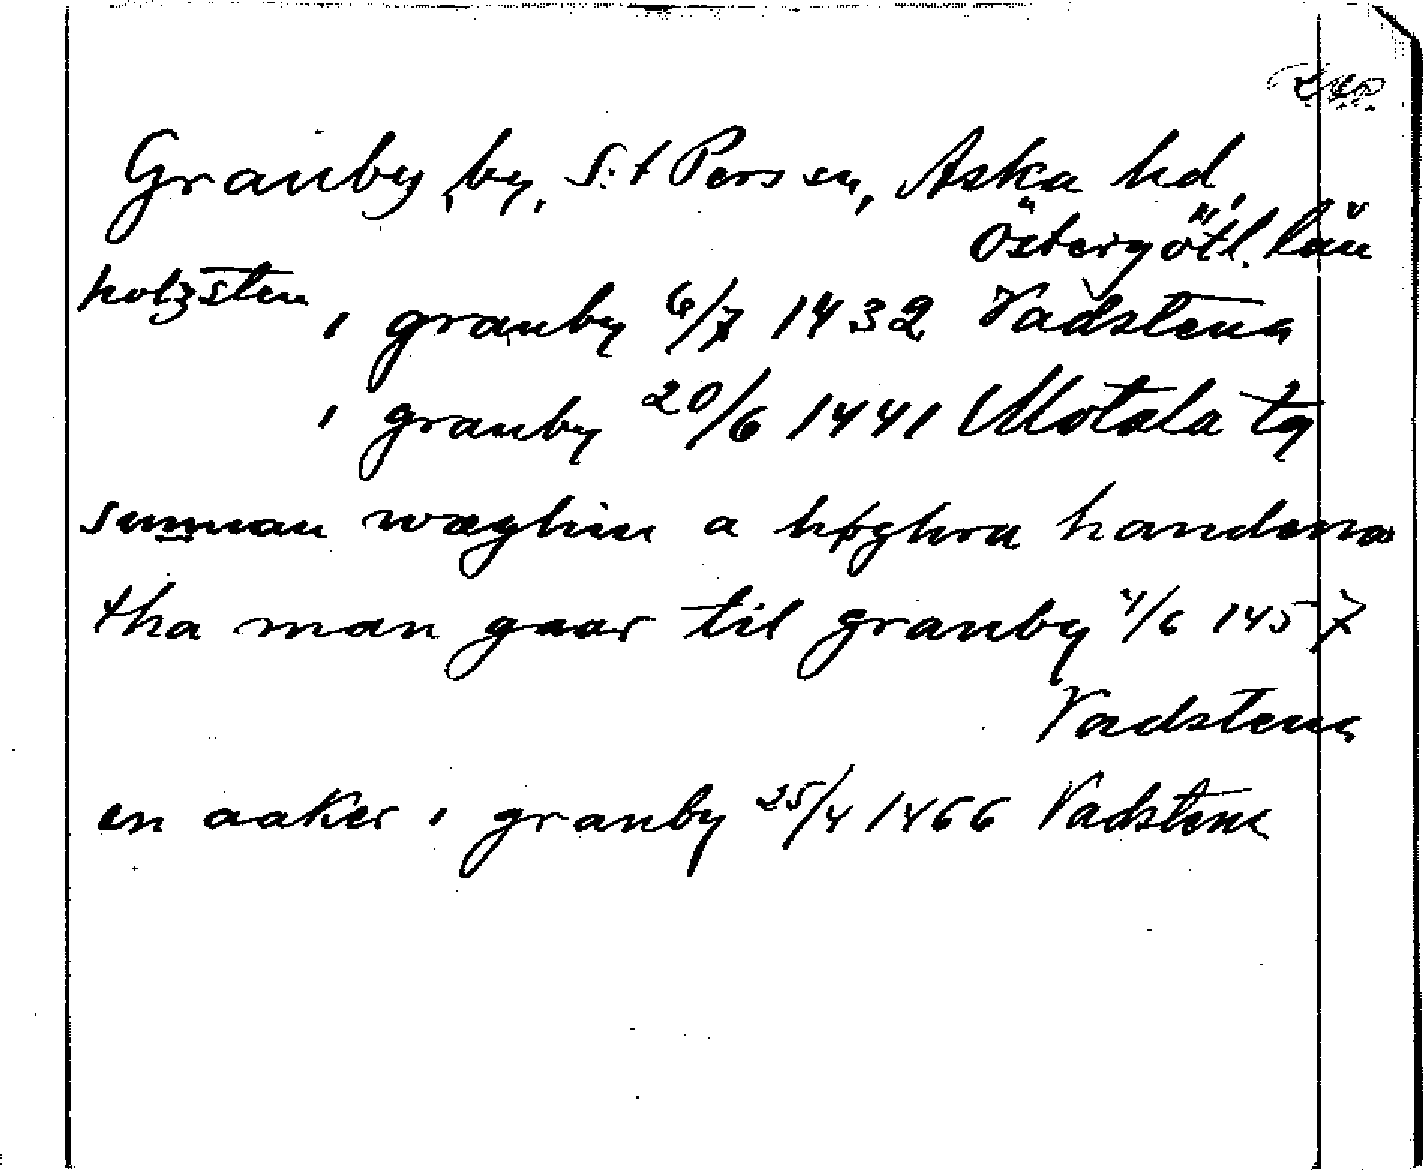 Granby, by, S:t Pers sn, Aska hd,
Östergötl. län
holzsten
i granby 6/7 1432 Vadstena
i granby 20/6 1441 Motala tg
sunnan wæghin a høghra handena
tha man gaar til granby 4/6 1457
Vadstena
en aaker i granby 25/4 1466 Vadstena